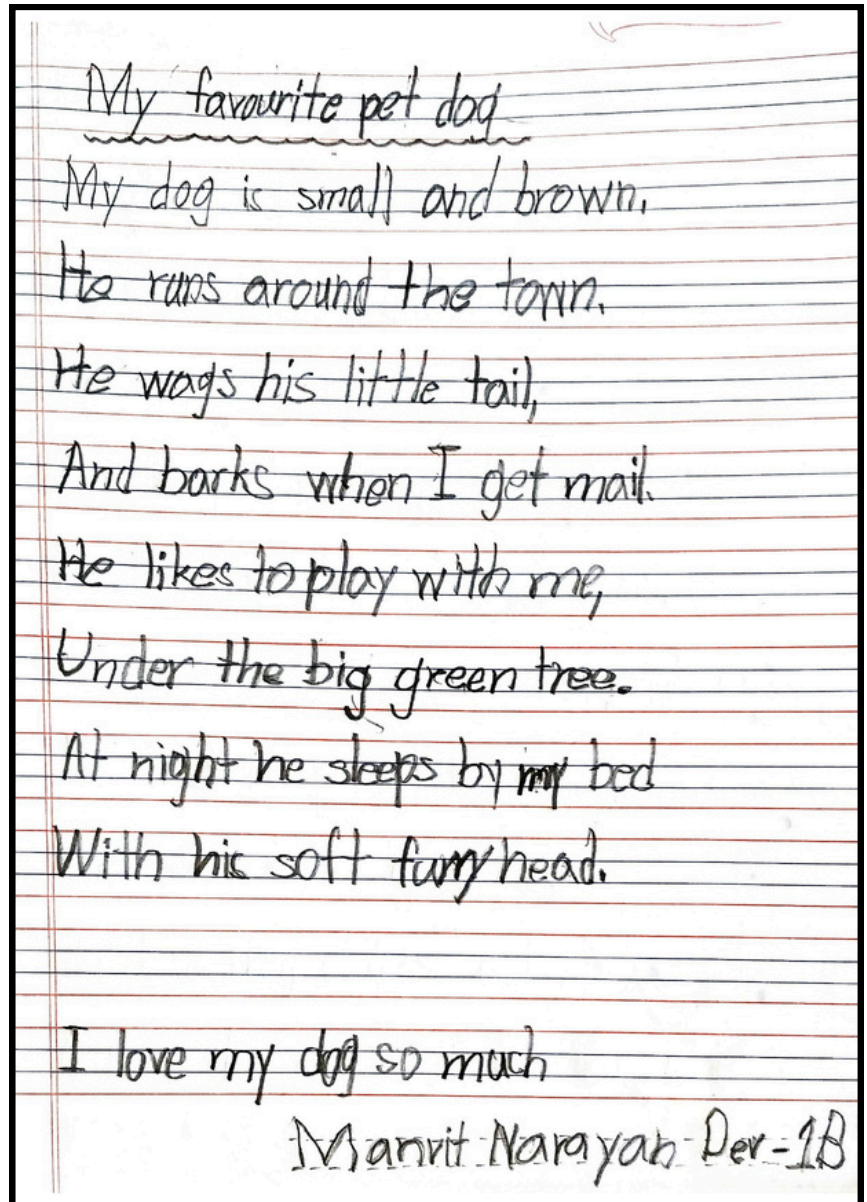 My favourite pet dog
My dog is small and brown.
He runs around the town.
He wags his little tail,
And barks when I get mail.
He likes to play with me,
Under the big green tree.
At night he sleeps by my bed
With his soft furry head.
I love my dog so much
Manvit Narayan Dev-1B